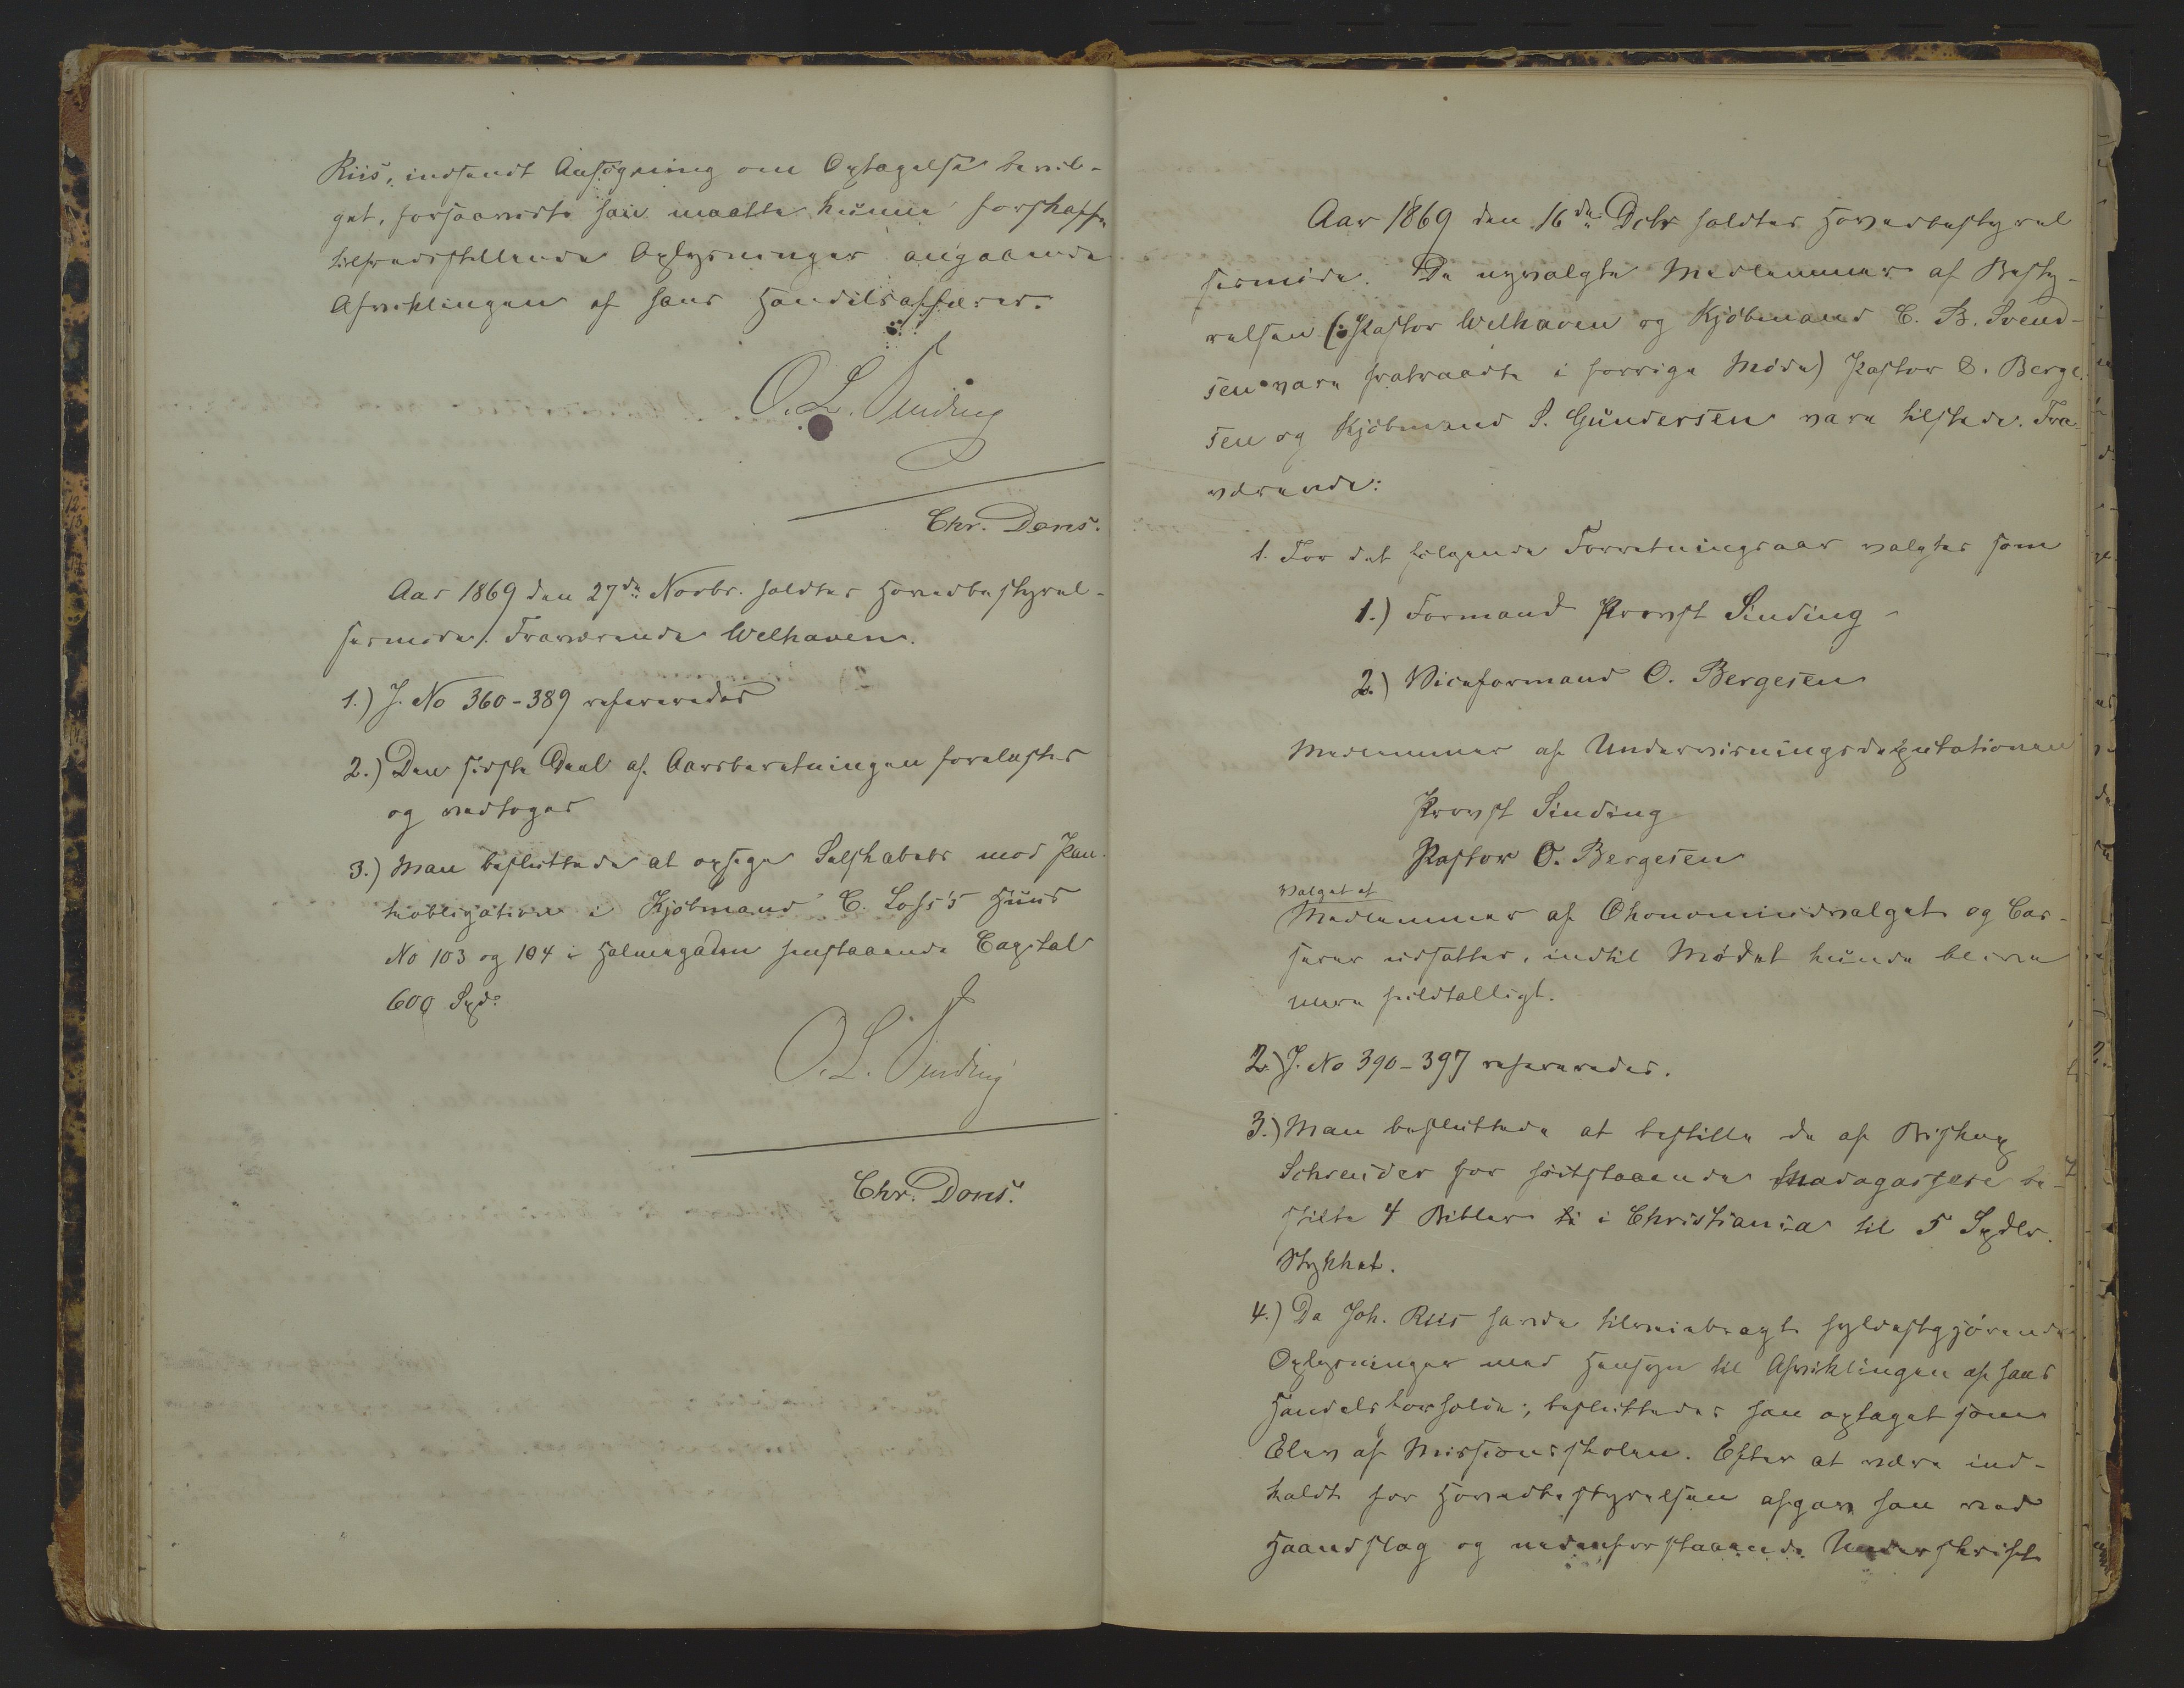 Riis, indsendt Ansøgning om Optagelse bevil-
get, forsaavidt han maatte kunne forskaffe
tilfredsstillende Oplysninger angaaende
Afviklingen af hans Handelsaffærer.
O. L. Sinding
Chr. Dons.
Aar 1869 den 27de Novbr. holdtes Hovedbestyrel-
sesmøde. Fraværende Welhaven.
1.) J. No 360-389 refereredes
2.) Den sidste Deel af Aarsberetningen forelæstes
og vedtoges
3.) Man besluttede at opsige Selskabets mod Pan-
teobligation i Kjøbmand C. Loss's Huus
No 103 og 104 i Holmegaden henstaaende Capital
600 Spd.
O. L. Sinding
Chr. Dons.
Aar 1869 den 16de Dcbr holdtes Hovedbestyrel
sesmøde. De nyvalgte Medlemmer af Besty-
relsen (: Pastor Welhaven og Kjøbmand C. B. Svend-
sen vare fratraadte i forrige Møde) Pastor O. Berge-
sen og Kjøbmand S. Gundersen vare tilstede. Fra
værende:
1. For det følgende Forretningsaar valgtes som
1.) Formand Provst Sinding
2.) Viceformand O. Bergesen
Medlemmer af Undervisningsdeputationen
Provst Sinding
Pastor O. Bergesen
Valget af
Medlemmer af Økonomiudvalget og Cas-
serer udsattes, indtil Mødet kunde blive
mere fuldtalligt.
2.) J. No 390-397 refereredes.
3.) Man besluttede at bestille de af Biskop
Schreuder for hidstaaende Madagassere be-
stilte 4 Bibler i Christiania til 5 Spdlr.
Stykket.
4.) Da Joh. Riis havde tilveiebragt fyldestgjørende
Oplysninger med Hensyn til Afviklingen af hans
Handelsforholde, besluttedes han optaget som
Elev af Missionsskolen. Efter at være ind-
kaldt for Hovedbestyrelsen afgav han med
Haandslag og nedenforstaaende Underskrift